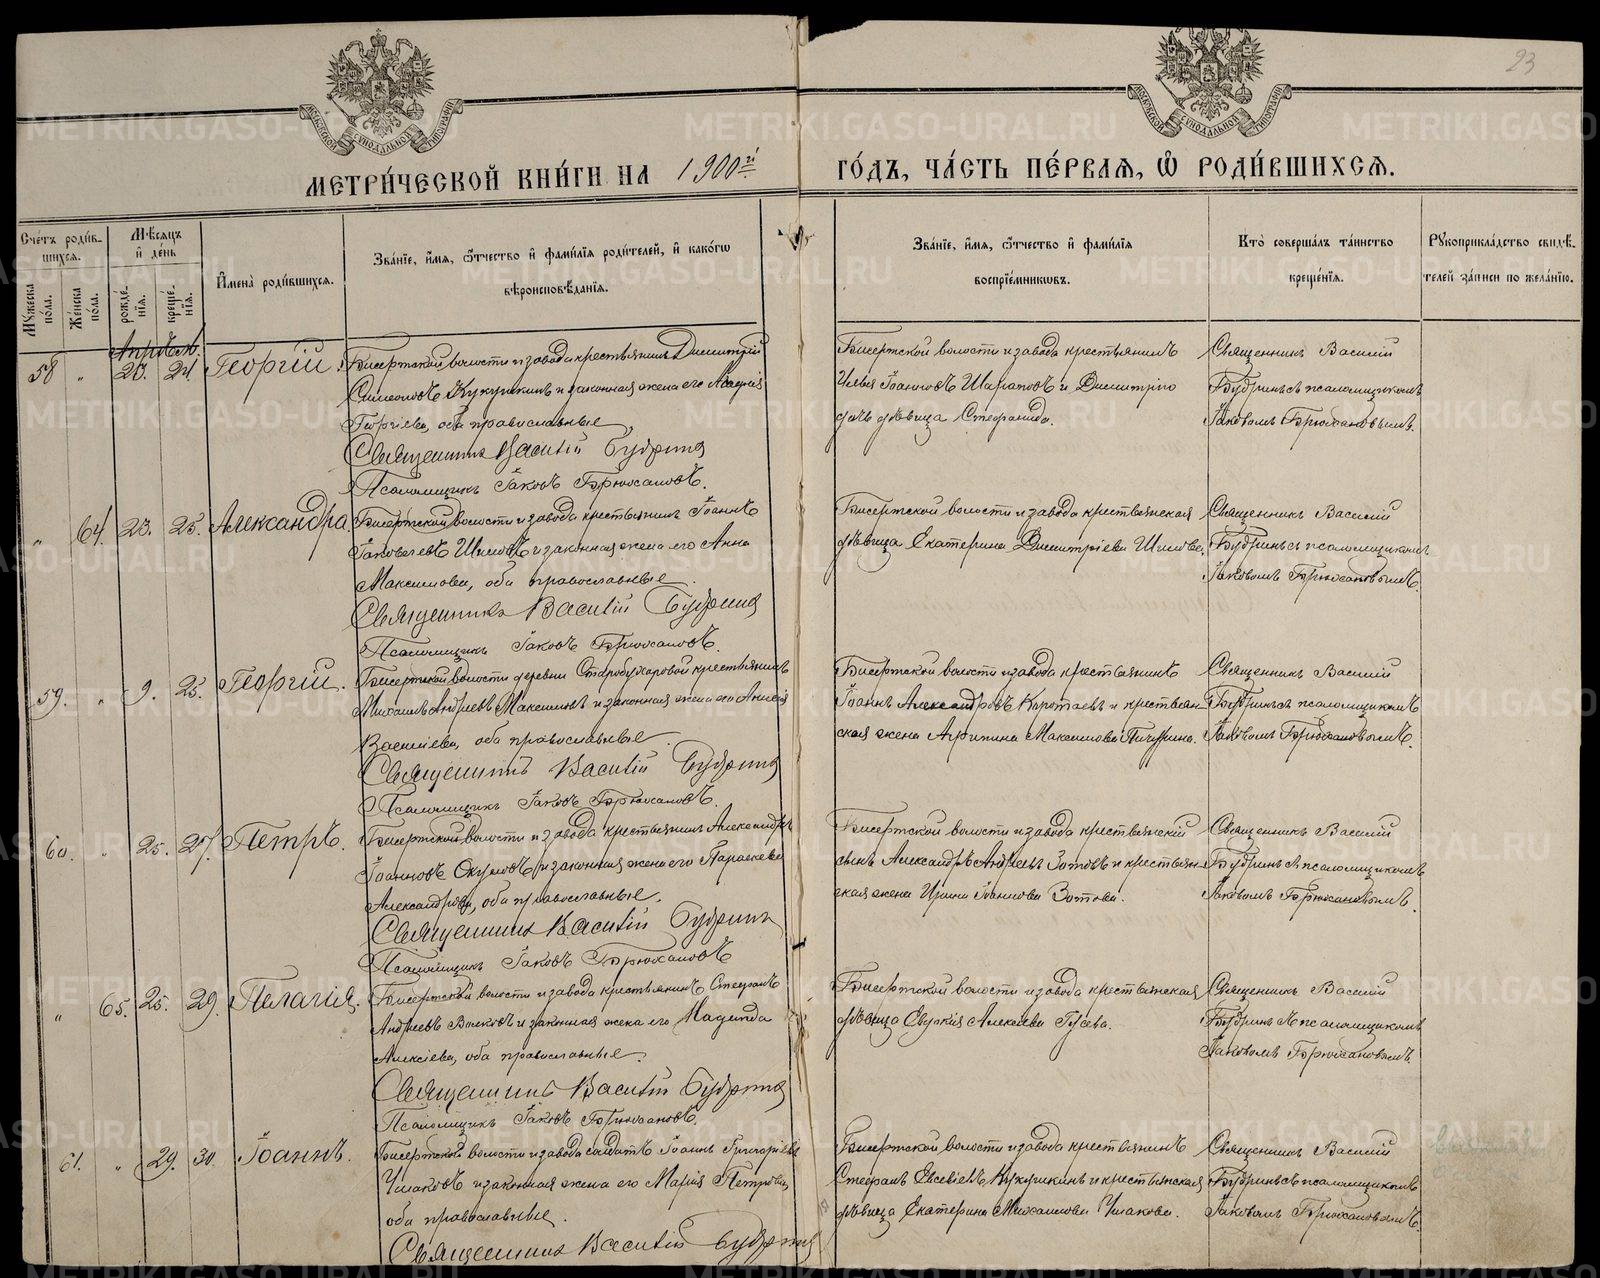 23
МОСКОВСКОЙ СѴНОДАЛЬНОЙ ТИПОГРАФІИ
МОСКОВСКОЙ СѴНОДАЛЬНОЙ ТИПОГРАФІИ
МЕТРИ́ЧЕСКОЙ КНИ́ГИ НА 1900й ГО́ДЪ, ЧА́СТЬ ПЕ́РВАЯ, Ѡ РОДИ́ВШИХСЯ.
Сче́тъ роди́в-
шихся.
Мꙋжеска по́ла.
Же́нска по́ла.
Мѣ́сяцъ
и де́нь
рожде́нїя.
креще́нїя.
Имена̀ роди́вшихся.
Зва́нїе, и́мя, ѻ́тчество и фами́лїя роди́телей, и како́гѡ
вѣроисповѣ́данїя.
Зва́нїе, и́мя, ѻ́тчество и фами́лїя
воспрїе́мниковъ.
Кто̀ соверша́лъ та́инство
креще́нїя.
Рꙋкоприкла́дство свидѣ́-
телей за́писи по жела́нїю.
Апрѣль.
58 " 20. 24. Георгій.
Бисертской волости и завода крестьянинъ Димитрій
Симеоновъ Кукушкинъ и законная жена его Марія
Георгіева, оба православные.
Священникъ Василій Будринъ
Псаломщикъ Іаковъ Брюхановъ.
Бисертской волости и завода крестьянинъ
Илья Іоанновъ Шараповъ и Димитрія
дочь дѣвица Стефанида.
Священникъ Василій
Будринъ съ псаломщикомъ
Іаковомъ Брюхановымъ.
" 64. 23. 25. Александра.
Бисертской волости и завода крестьянинъ Іоаннъ
Іаковлевъ Шиловъ и законная жена его Анна
Максимова, оба православные.
Священникъ Василій Будринъ
Псаломщикъ Іаковъ Брюхановъ.
Бисертской волости и завода крестьянская
дѣвица Екатерина Димитріева Шилова.
Священникъ Василій
Будринъ съ псаломщикомъ
Іаковомъ Брюхановымъ.
59. " 9. 25. Георгій.
Бисертской волости деревни Старобухаровой крестьянинъ
Михаилъ Андреевъ Максимовъ и законная жена его Анисія
Васильева, оба православные.
Священникъ Василій Будринъ
Псаломщикъ Іаковъ Брюхановъ.
Бисертской волости и завода крестьянинъ
Іоаннъ Александровъ Коротаевъ и крестьян-
ская жена Агрипина Максимова Пичурина.
Священникъ Василій
Будринъ съ псаломщикомъ
Іаковомъ Брюхановымъ.
60. " 25. 27. Петръ.
Бисертской волости и завода крестьянинъ Александръ
Іоанновъ Окуловъ и законная жена его Параскева
Александрова, оба православные.
Священникъ Василій Будринъ
Псаломщикъ Іаковъ Брюхановъ
Бисертской волости и завода крестьянскій
сынъ Александръ Андреевъ Зотовъ и крестьян-
ская жена Ирина Іоаннова Зотова.
Священникъ Василій
Будринъ съ псаломщикомъ
Іаковомъ Брюхановымъ.
" 65. 25. 29. Пелагія.
Бисертской волости и завода крестьянинъ Стефанъ
Андреевъ Волковъ и законная жена его
Алексіева, оба православные.
Священникъ Василій Будринъ
Псаломщикъ Іаковъ Брюхановъ.
Бисертской волости и завода крестьянская
дѣвица Евдокія Алексіева Гусева.
Священникъ Василій
Будринъ съ псаломщикомъ
Іаковомъ Брюхановымъ.
61. " 29. 30. Іоаннъ.
Бисертской волости и завода солдатъ Іоаннъ Григоріевъ
Ушаковъ и законная жена его Марія Петрова,
оба православные.
Священникъ Василій Будринъ
Бисертской волости и завода крестьянинъ
Стефанъ Евсевіевъ Кукушкинъ и крестьянская
дѣвица Екатерина Михаилова Ушакова.
Священникъ Василій
Будринъ съ псаломщикомъ
Іаковомъ Брюхановымъ.
METRIKI.GASO-URAL.RU